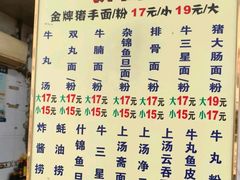 金牌猪手面/粉 17元/小 19元/大
牛丸汤
大17元
小15元
双丸面/粉
大17元
小15元
牛腩面/粉
大17元
小15元
杂锦鱼旦面/粉
大17元
小15元
排骨面/粉
大17元
小15元
牛三星面/粉
大17元
小15元
猪大肠面/粉
大19元
小17元
炸酱捞
蚝油捞
什锦鱼旦
牛三
上汤斋
上汤净
上汤云吞
牛丸鱼
牛丸皮